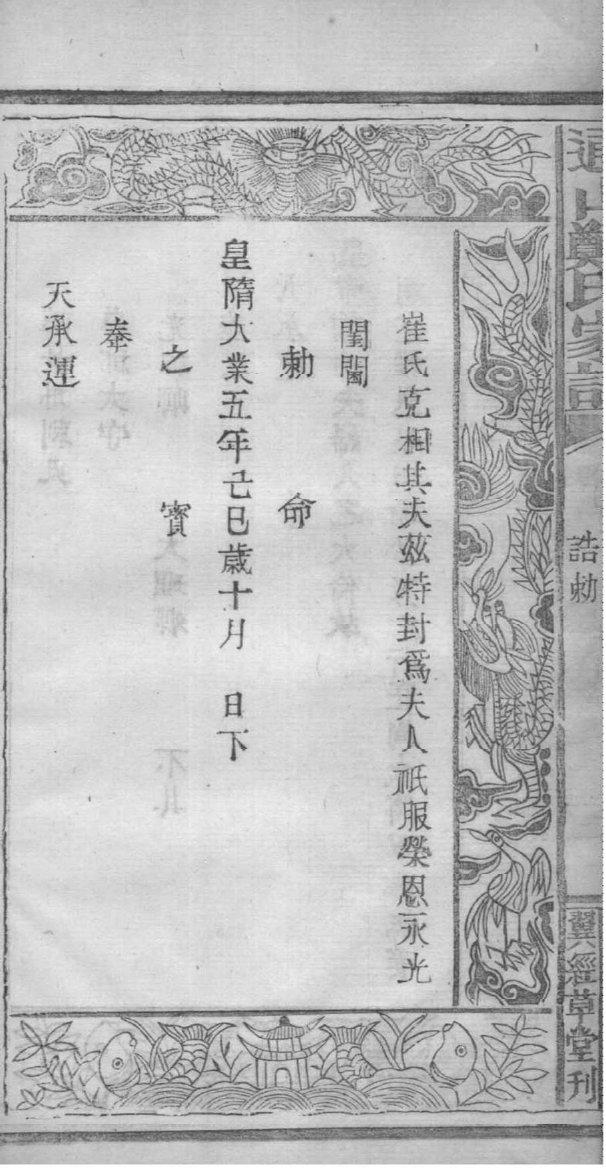 通山鄭氏家譜
誥勅
翼經草堂刊
崔氏克相其夫茲特封爲夫人祇服榮恩永光
閨閫
勅命
皇隋大業五年己巳歲十月　日下
之寳
奉
天承運